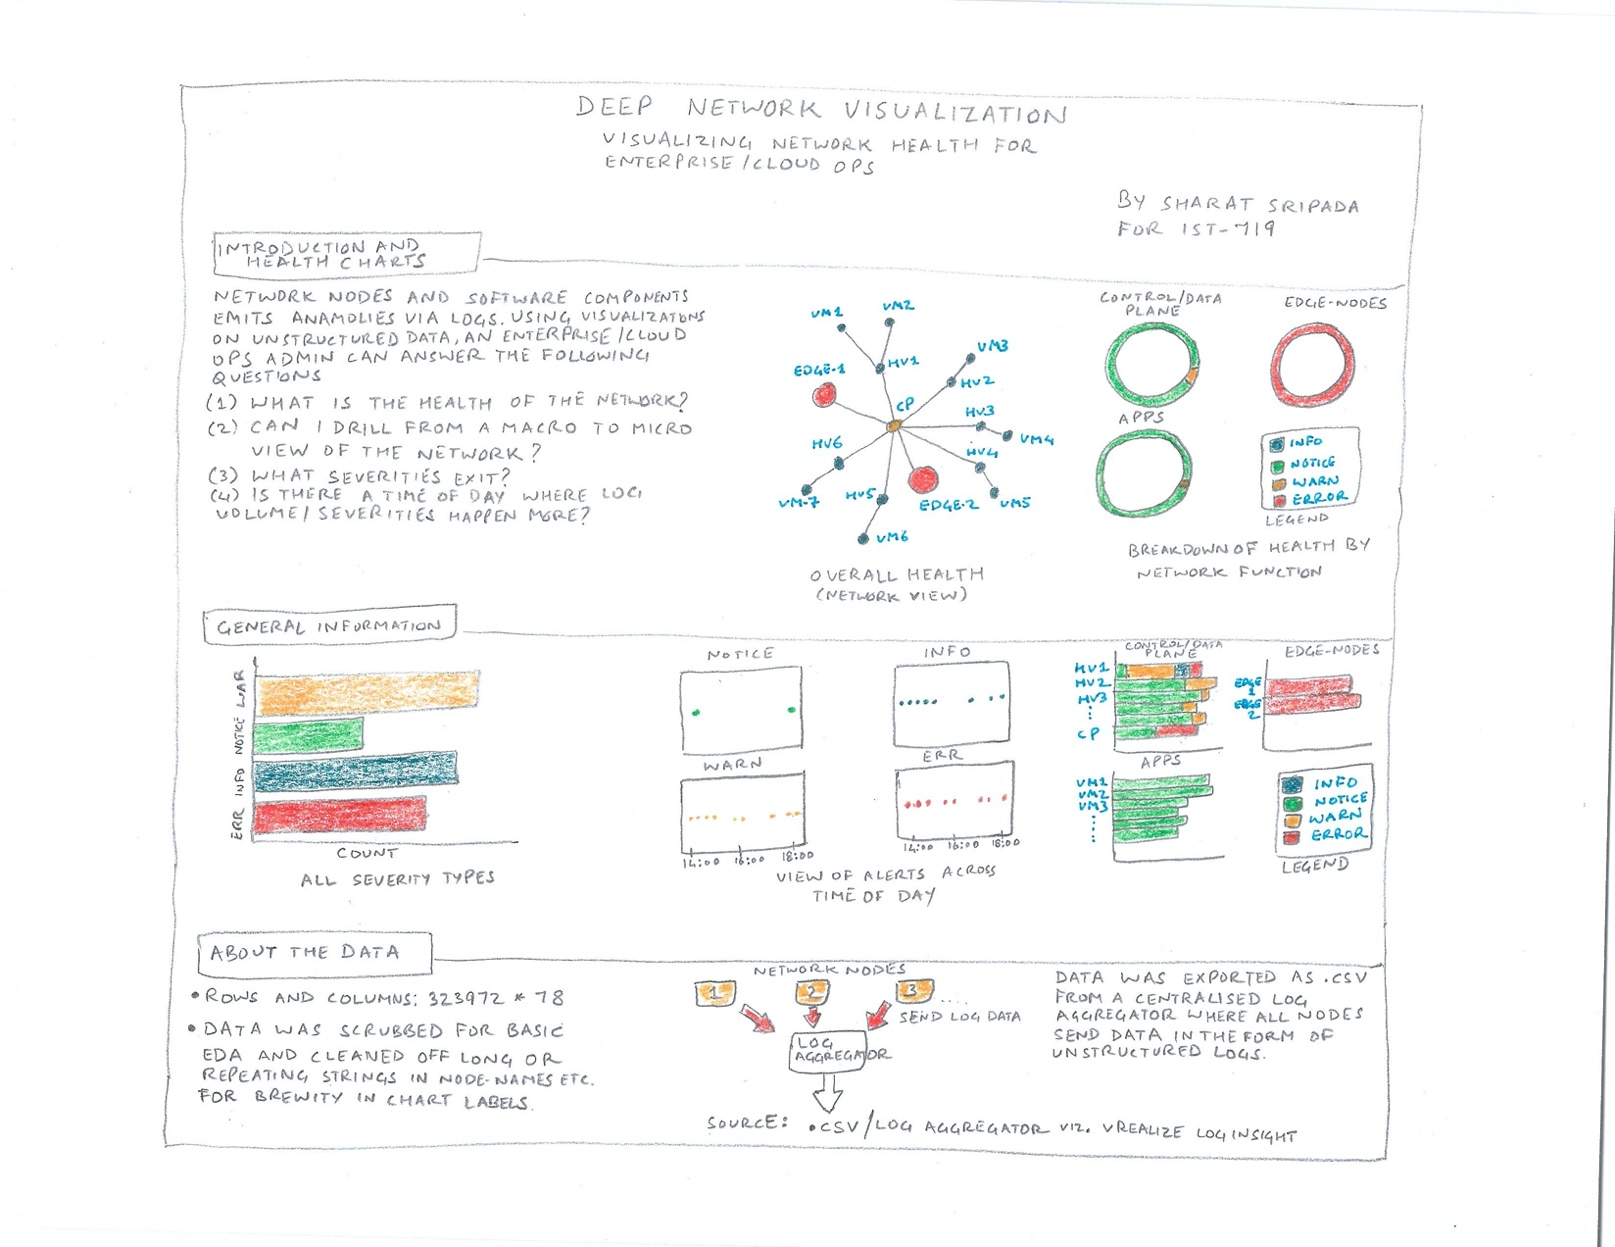 DEEP NETWORK VISUALIZATION
VISUALIZING NETWORK HEALTH FOR
ENTERPRISE/CLOUD OPS
BY SHARAT SRIPADA
FOR IST-719
INTRODUCTION AND
HEALTH CHARTS
NETWORK NODES AND SOFTWARE COMPONENTS
EMITS ANAMOLIES VIA LOGS. USING VISUALIZATIONS
ON UNSTRUCTURED DATA, AN ENTERPRISE/CLOUD
OPS ADMIN CAN ANSWER THE FOLLOWING
QUESTIONS
(1) WHAT IS THE HEALTH OF THE NETWORK?
(2) CAN I DRILL FROM A MACRO TO MICRO
VIEW OF THE NETWORK?
(3) WHAT SEVERITIES EXIT?
(4) IS THERE A TIME OF DAY WHERE LOG
VOLUME/SEVERITIES HAPPEN MORE?
VM1
VM2
HV1
VM3
HV2
EDGE-1
CP
HV3
VM4
HV6
HV4
VM-7
HV5
EDGE-2
VM5
VM6
OVERALL HEALTH
(NETWORK VIEW)
CONTROL/DATA
PLANE
EDGE-NODES
APPS
INFO
NOTICE
WARN
ERROR
LEGEND
BREAKDOWN OF HEALTH BY
NETWORK FUNCTION
GENERAL INFORMATION
WAR
NOTICE
INFO
ERR
COUNT
ALL SEVERITY TYPES
NOTICE
INFO
WARN
ERR
14:00 16:00 18:00
14:00 16:00 18:00
VIEW OF ALERTS ACROSS
TIME OF DAY
CONTROL/DATA
PLANE
HV1
HV2
HV3
CP
EDGE-NODES
EDGE
1
EDGE
2
APPS
VM1
VM2
VM3
INFO
NOTICE
WARN
ERROR
LEGEND
ABOUT THE DATA
• ROWS AND COLUMNS: 323972 * 78
• DATA WAS SCRUBBED FOR BASIC
EDA AND CLEANED OFF LONG OR
REPEATING STRINGS IN NODE-NAMES ETC.
FOR BREWITY IN CHART LABELS.
NETWORK NODES
1 2 3 ....
SEND LOG DATA
LOG
AGGREGATOR
SOURCE: .CSV/LOG AGGREGATOR VIZ. VREALIZE LOG INSIGHT
DATA WAS EXPORTED AS .CSV
FROM A CENTRALISED LOG
AGGREGATOR WHERE ALL NODES
SEND DATA IN THE FORM OF
UNSTRUCTURED LOGS.